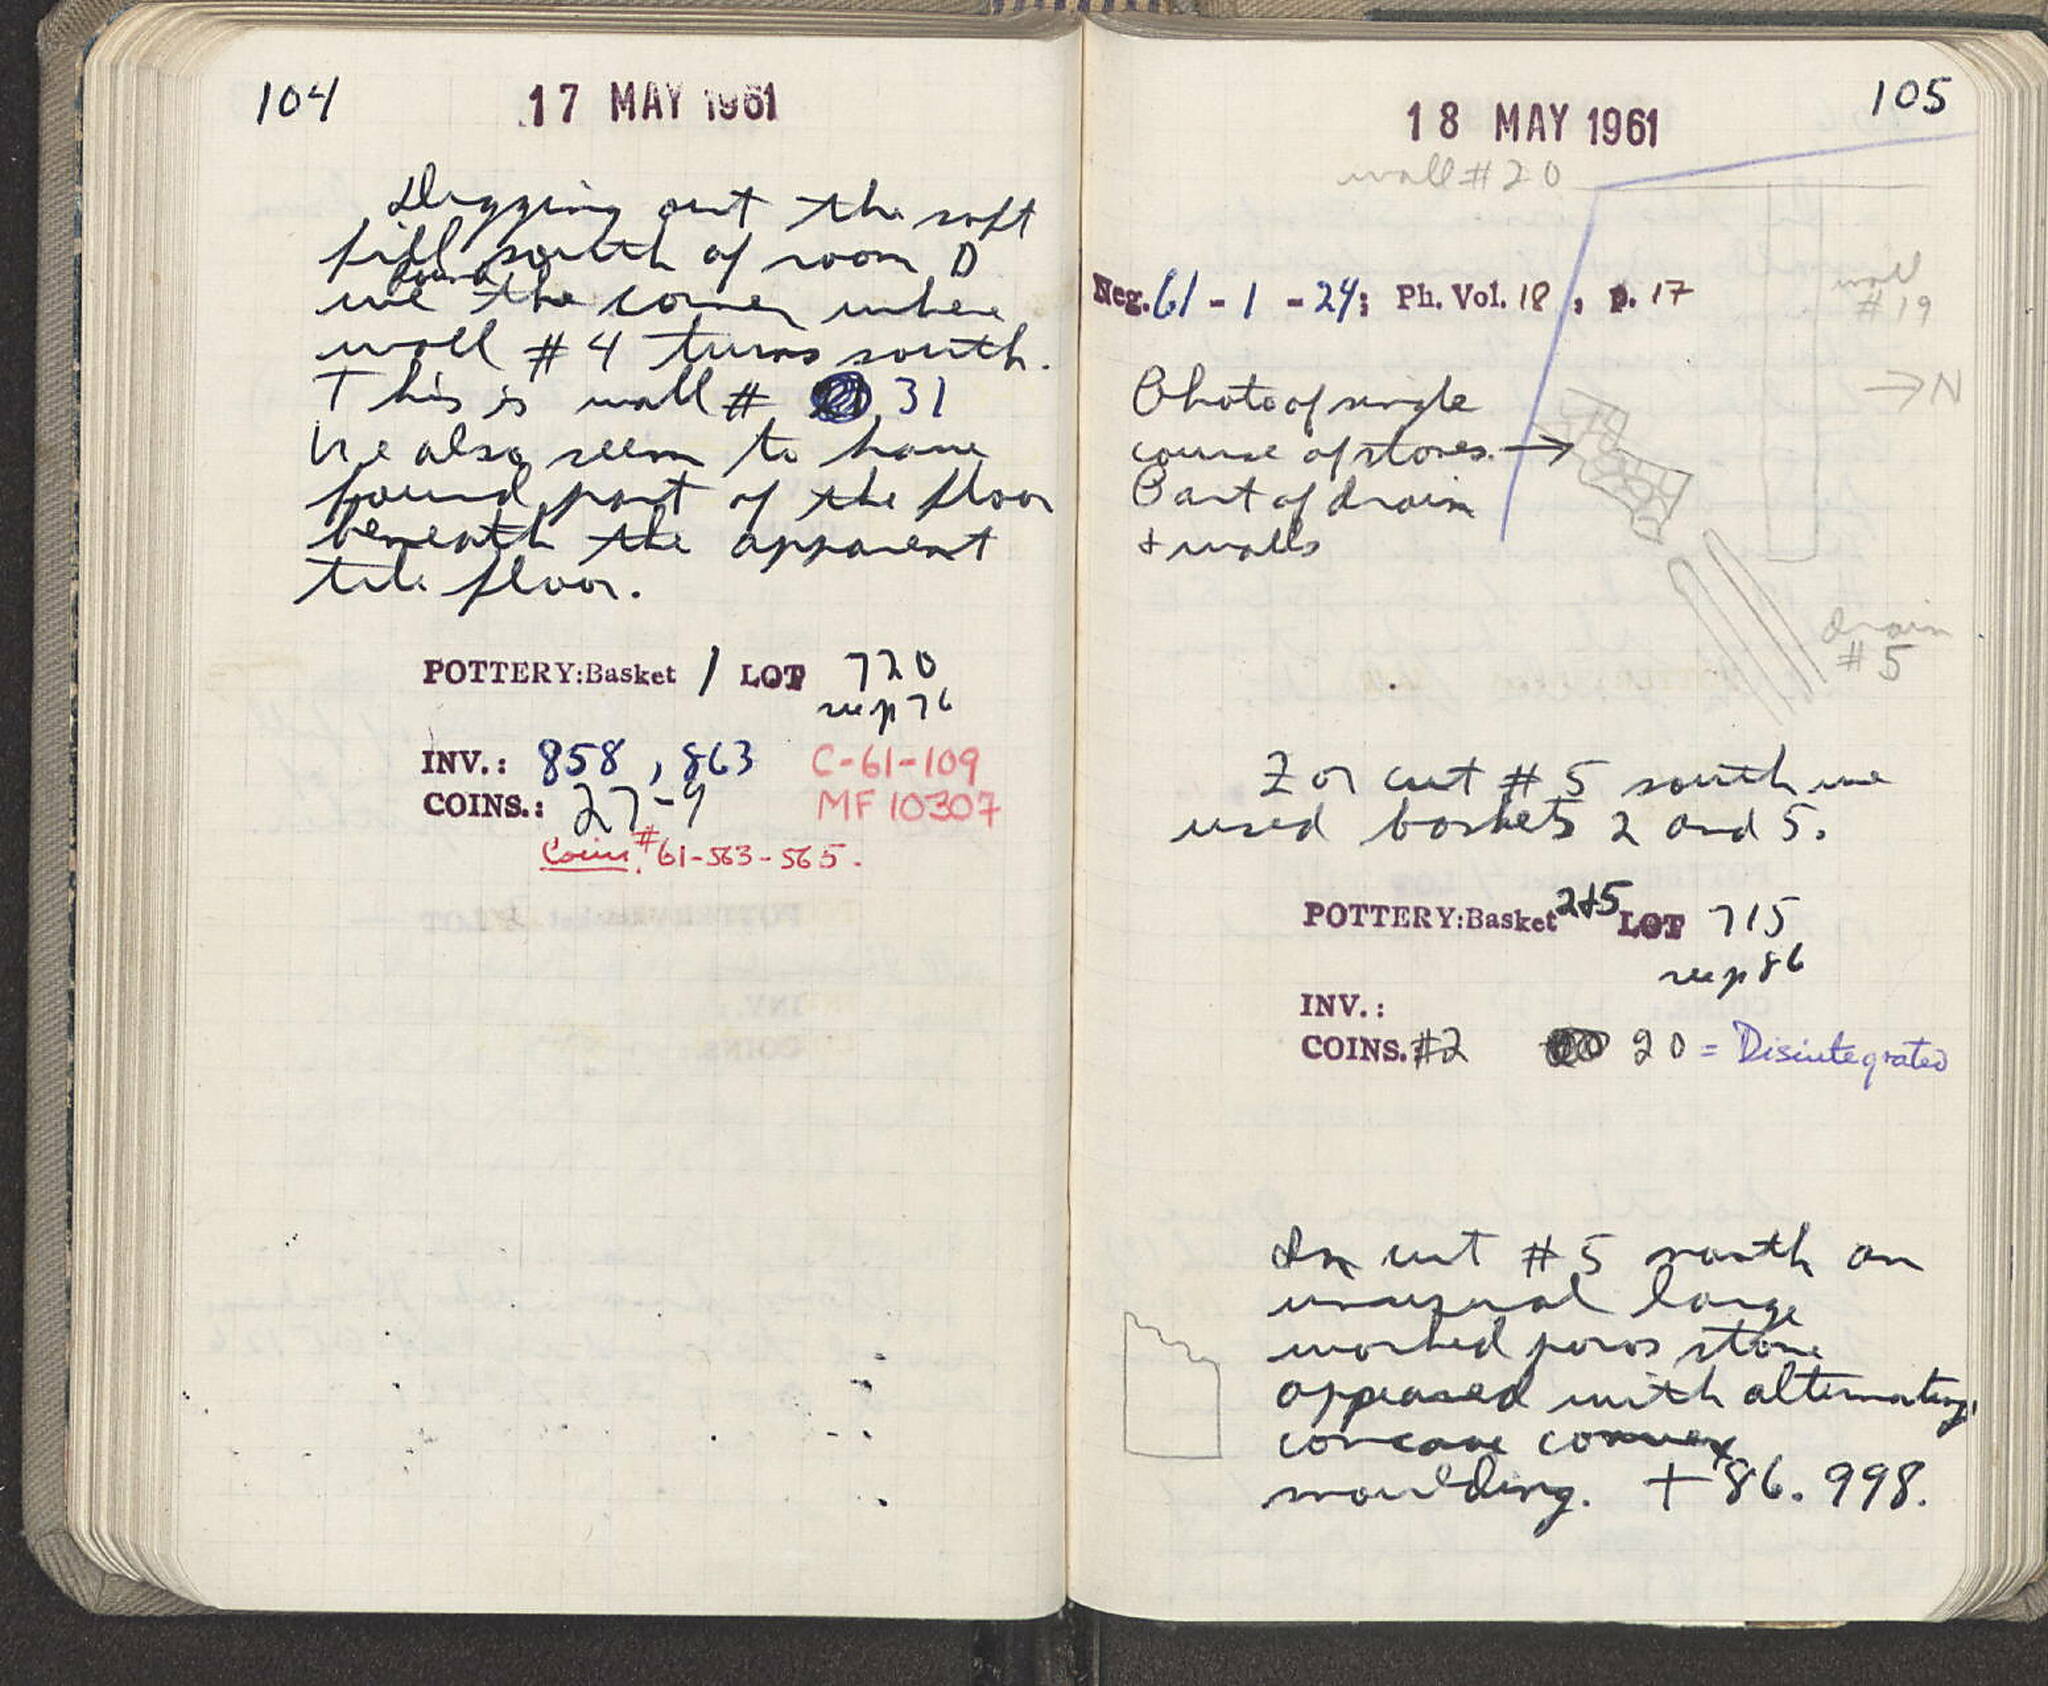 104
17 MAY 1961
Digging out the soft
fill south of room D
we found the corner where
wall #4 turns south.
This is wall # 31
We also seem to have
found part of the floor
beneath the apparent
tile floor.
POTTERY:Basket 1 LOT 720
see p 76
INV.: 858, 863 C-61-109
COINS.: 27-9 MF 10307
Coins # 61-563-565.
105
18 MAY 1961
wall #20
wall
#19
Neg. 61-1-24; Ph. Vol. 18, p. 17
→N
Photo of single
course of stones. →
Part of drain
+ walls
drain
#5
For cut #5 south we
used baskets 2 and 5.
POTTERY:Basket 2+5 LOT 715
see p 86
INV.:
COINS. #2 20 = Disintegrated
In cut #5 north an
unusual large
worked poros stone
appeared with alternating
concave convex
moulding. +86.998.